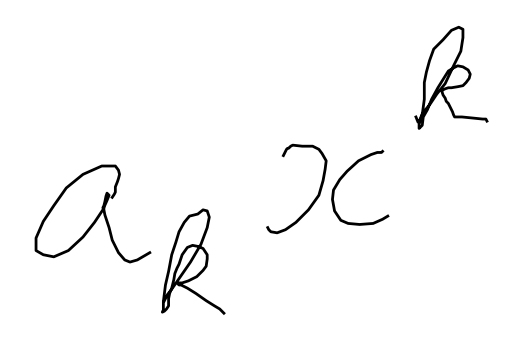 a_k x^k